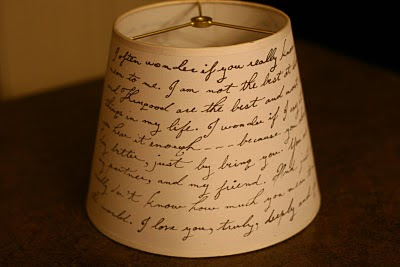 I often wonder if you really know
mean to me. I am not the best at
and are the best and most
things in my life. I wonder if I say
you hear it enough - - - - because you
day better, just by being you. You
partner, and my friend.
don't know how much you mean to
world. I love you, truly, deeply and